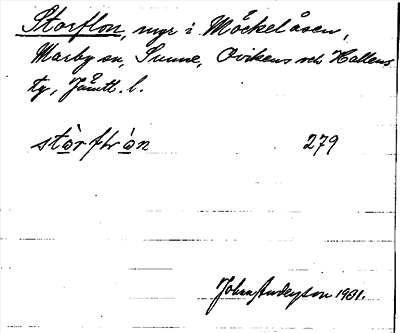 Storflon, myr i Möckelåsen,
Marby sn, Sunne, Ovikens och Hallens
tg, Jämtl. l.
stòrflòn 279
Johan Anderson 1901.